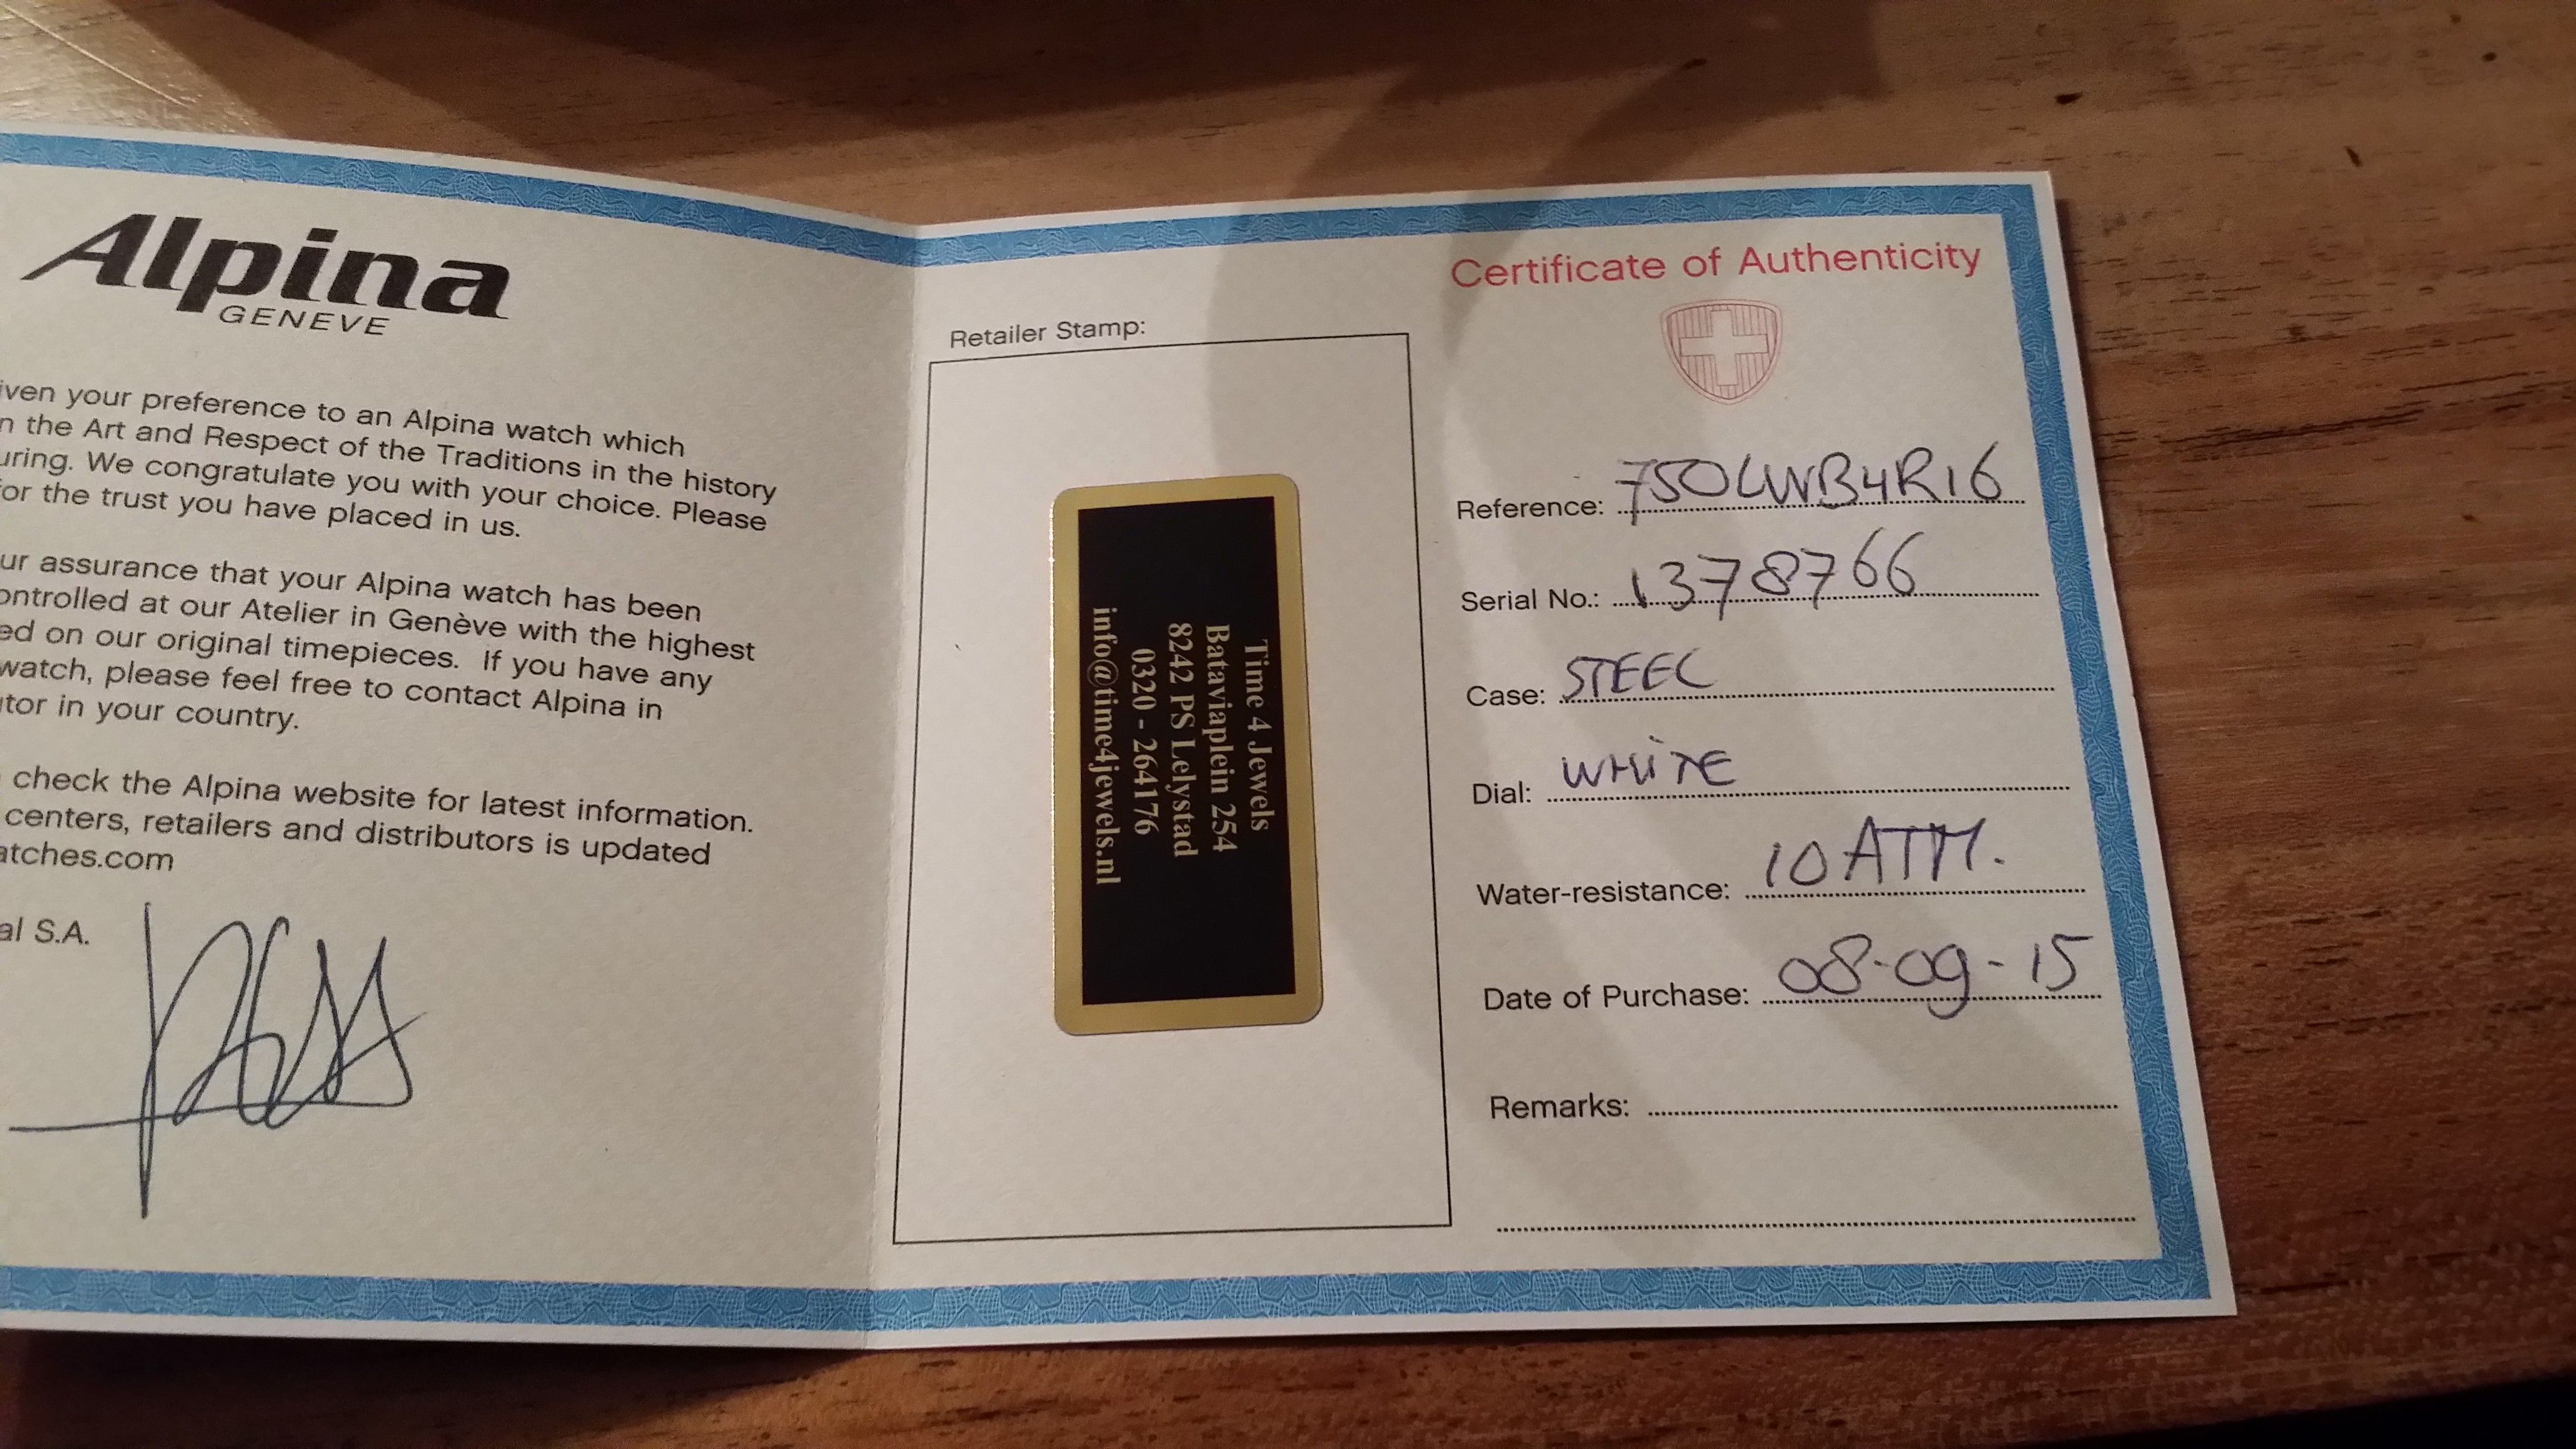 Alpina
GENEVE
iven your preference to an Alpina watch which
n the Art and Respect of the Traditions in the history
uring. We congratulate you with your choice. Please
for the trust you have placed in us.
ur assurance that your Alpina watch has been
ontrolled at our Atelier in Genève with the highest
ed on our original timepieces. If you have any
watch, please feel free to contact Alpina in
utor in your country.
check the Alpina website for latest information.
centers, retailers and distributors is updated
atches.com
al S.A.
Retailer Stamp:
Time 4 Jewels
Bataviaplein 254
8242 PS Lelystad
0320 - 264176
info@time4jewels.nl
Certificate of Authenticity
Reference: 750LWB4R16
Serial No.: 1378766
Case: STEEL
Dial: WHITE
Water-resistance: 10 ATM.
Date of Purchase: 08-09-15
Remarks: